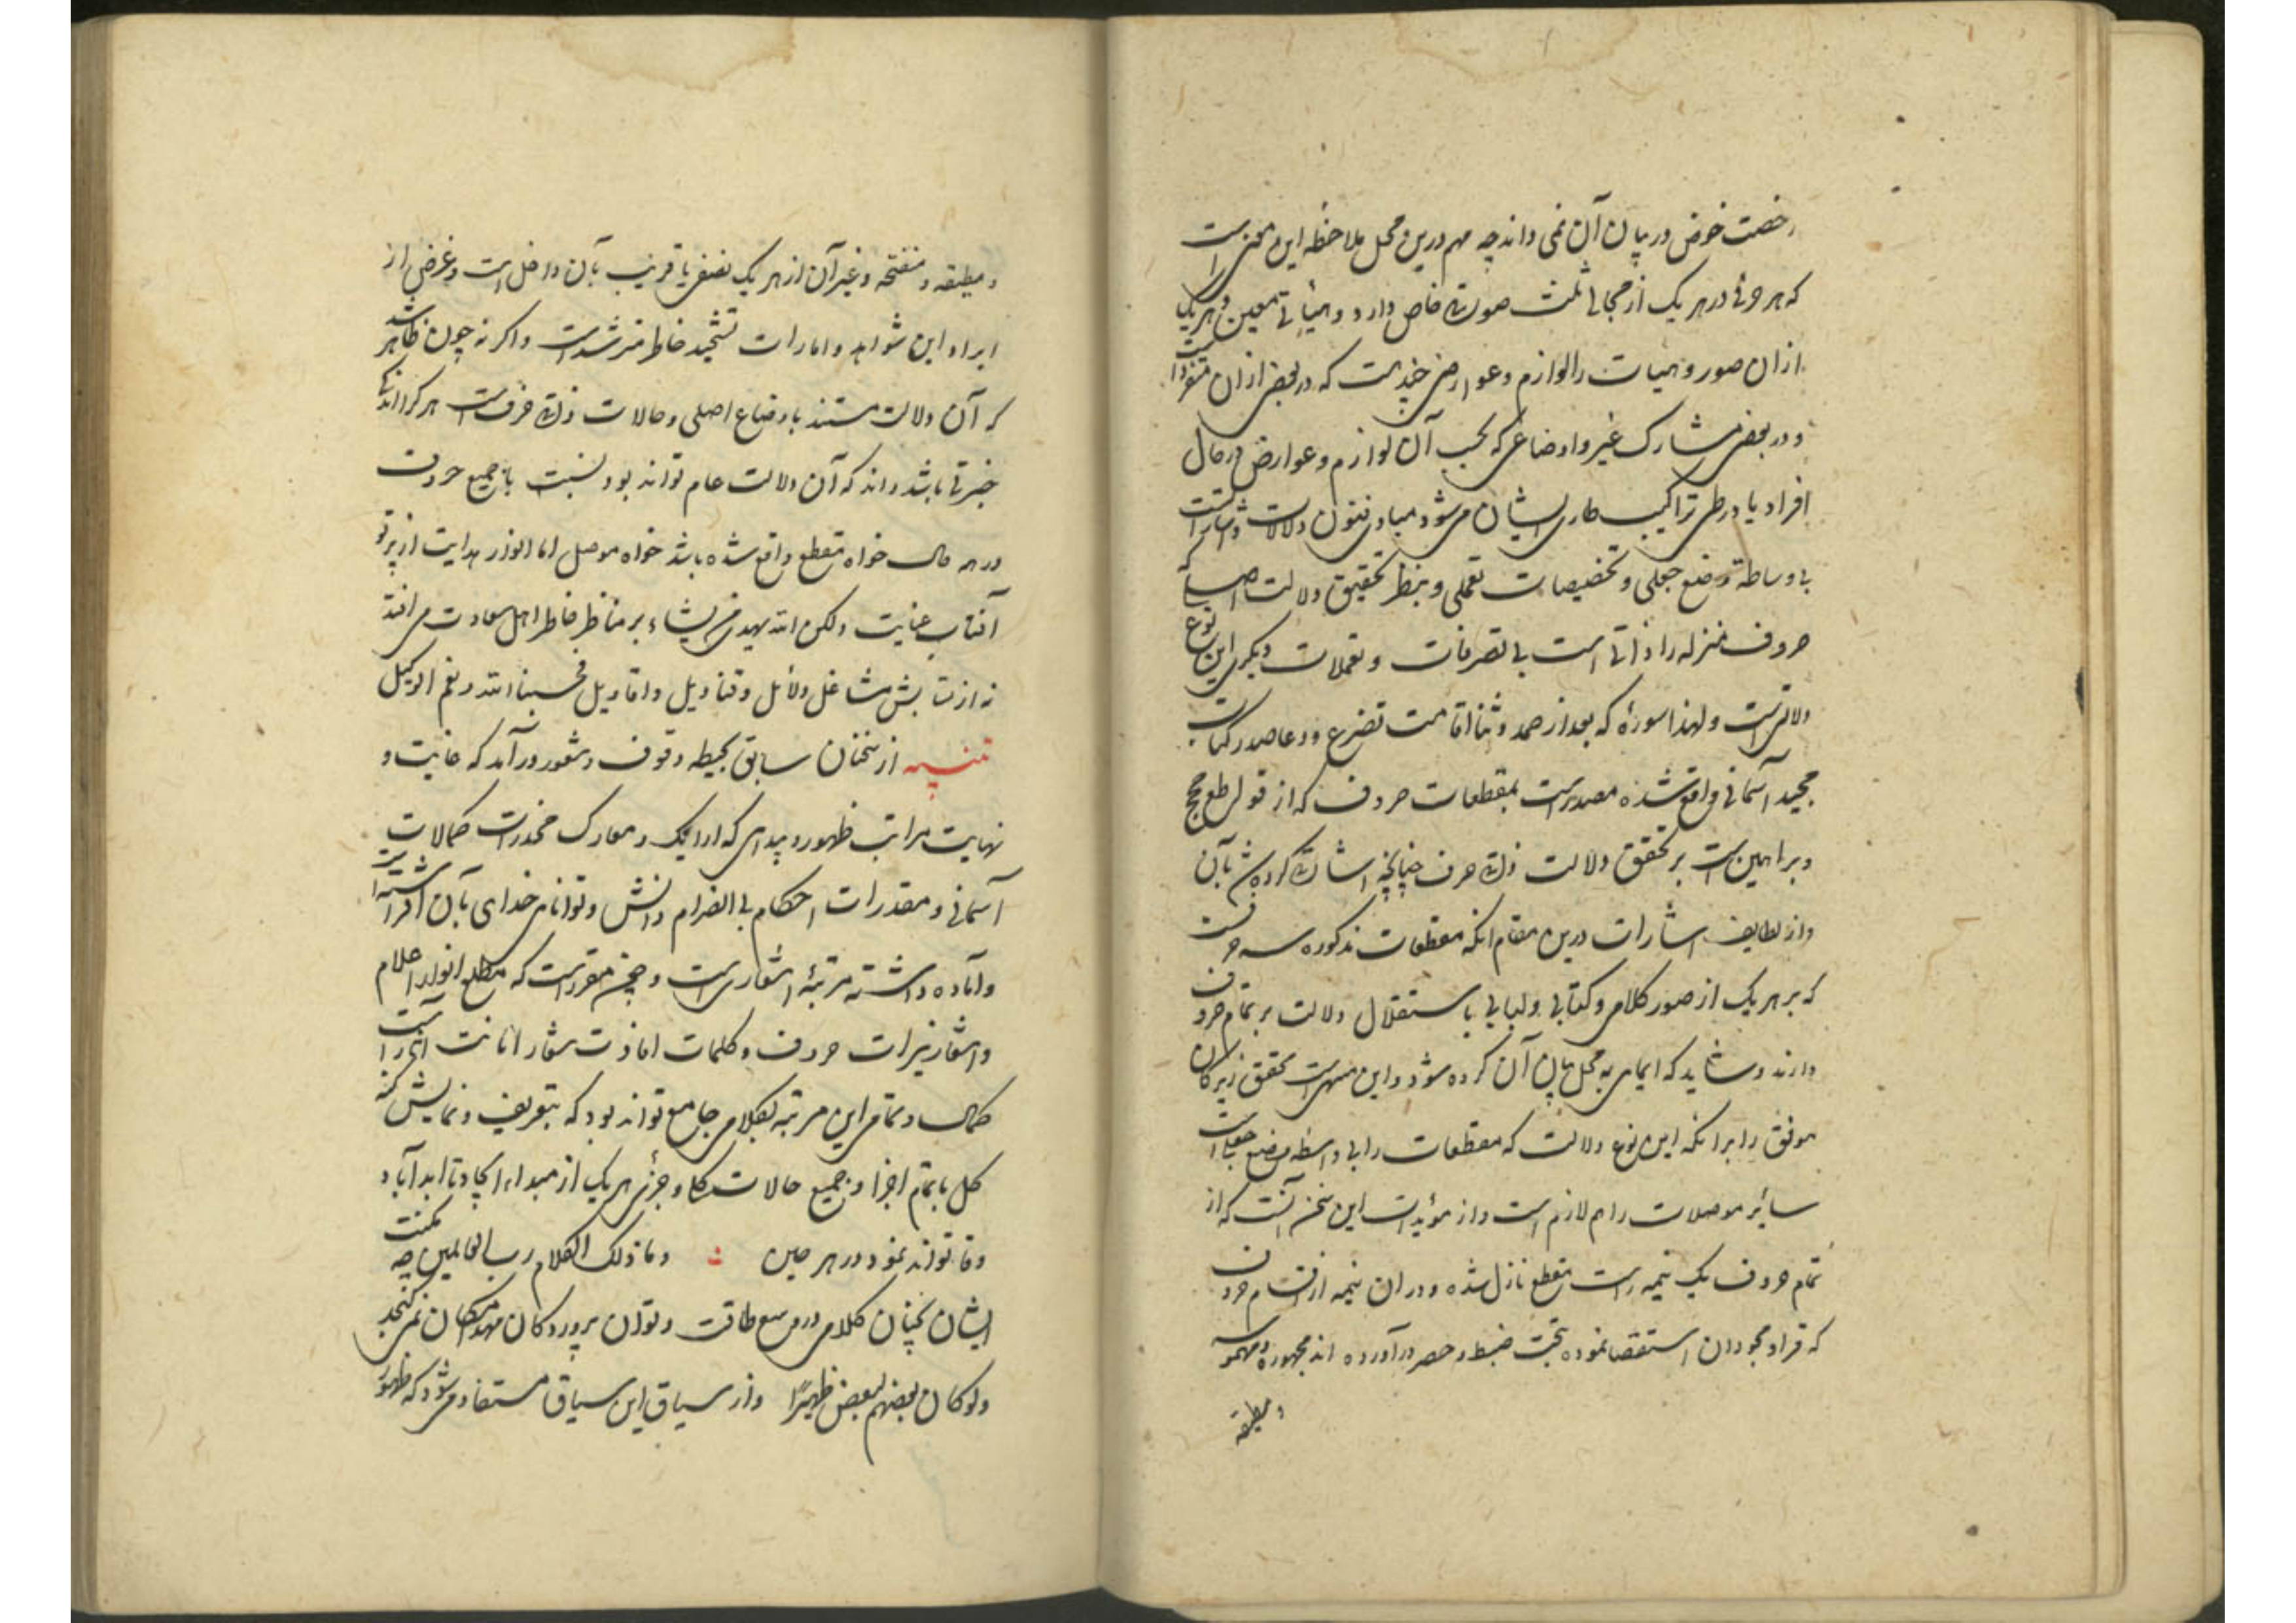 رخصت خوض در بیان آن نمی داند چه مهم درین محل ملاحظه این معنی است
که هر حرفی در هر یک از مجالی ثلث صورتی خاص دارد و هیأتی معین و هر یک
ازان صور و هیات را لوازم و عوارضی چندست که در بعضی ازان منفردست
و در بعضی مشارک غیر و اوضاعی که بحسب آن لوازم و عوارض در حال
افراد یا در طی تراکیب طاری ایشان می شود مبادی فنون دلالات و اشاراتست
بی وساطة وضع جعلی و تخصیصات تعملی و بنظر تحقیق دلالت اصلی که
حروف منزله را ذاتی است بی تصرفات و تعملات دیگری این نوع
دلالتست و لهذا سورهٔ که بعد از حمد و ثنا اقامت تضرع و دعا صدر کتاب
مجید آسمانی واقع شده مصدرست بمقطعات حروف که از قواطع حجج
و براهین است بر تحقق دلالت ذاتی حرف چنانچه اشارتی کرده شد بآن
و از لطایف اشارات درین مقام آنکه مقطعات مذکوره سه حرفست
که بر هر یک از صور کلامی و کتابی و لبابی باستقلال دلالت بر تمام حروف
دارند و شاید که ایمایی به محل بیان آن کرده شود و این منبهی است محقق زیرکان
موفق را برانکه این نوع دلالت که مقطعات را بی واسطه وضع جعلیاست
سایر موصلات را هم لازم است و از مؤیدات این سخن آنست که از
تمام حروف یک نیمه است مقطع نازل شده و دران نیمه از اقسام حروف
که قراء مجودان استقصا نموده تحت ضبط و حصر درآورده اند مجهوره و مهموسه
و مطبقه
و مطبقه و منفتحه و غیر آن از هر یک نصفی یا قریب بآن داخل است و غرض از
ایراد این شواهد و امارات تشحیذ خاطر مسترشدست و اگر نه چون ظاهر شد
که آن دلالت مستند باوضاع اصلی و حالات ذاتی حرفست هر کرا اندک
خبرتی باشد داند که آن دلالت عام تواند بود نسبت با جمیع حروف
در هر حال خواه مقطع واقع شده باشد خواه موصل اما انوار هدایت از پرتو
آفتاب عنایت ولکن الله یهدی من یشاء بر مناظر خاطر اهل سعادت می افتد
نه از تابش مشاعل دلائل و قنادیل و اقاویل فحسبنا الله و نعم الوکیل
تنبیه از سخنان سابق بحیطه وقوف و شعور درآمد که غایت و
نهایت مراتب ظهور و پیدایی که ارایک و معارک مخدرات کمالات
آسمانی و مقدرات احکام بی انصرام دانش و توانایی خدای بآن آراسته است
و آماده داشته مرتبهٔ اشعاری است و همچنین مقررست که مطلع انوار اعلام
و اشعار نیرات حروف و کلمات افادت شعار انانت آثارست
کمال و تمامی این مرتبه بکلامی جامع تواند بود که بتعریف و نمایش کنه
کل با تمام اجزا و جمیع حالات کلی و جزئی هر یک از مبداء ایجاد تا ابد آباد
وفا تواند نمود در هر حین وما ذلک الا کلام رب العالمین چه مکنت
ایشان بچنان کلامی در وسع طاقت و توان پروردگان مهد امکان نمی گنجد
ولو کان بعضهم لبعض ظهیرا و از سیاق این سیاق مستفاد می شود که ظهور